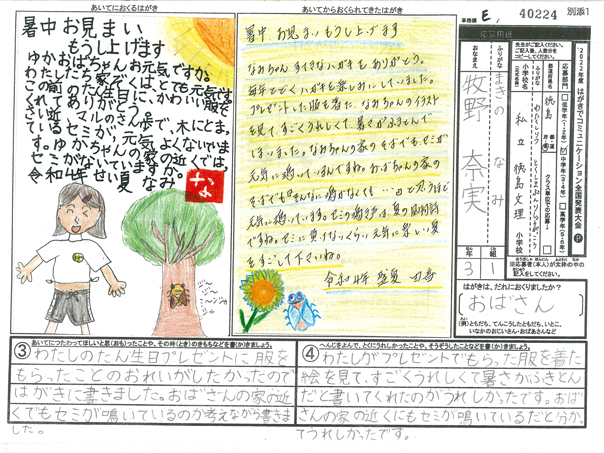 あいてにおくるはがき
暑中お見まい
もうし上げます
ゆかおばちゃんお元気ですか。
わたしたち家ぞくは、とても元気です。
この前のたん生日に、かわいい服を
くれてありがとう。
さいきん、マルのさん歩で、木にとま
ているセミが、元気よくないていま
す。ゆかちゃんの家の近くでは、
セミがないていますか。
令和4年せい夏 なみ
なみ
あいてからおくられてきたはがき
暑中お見まいもうし上げます
なみちゃんすてきなハガキをありがとう。
毎年とどくハガキを楽しみにしていました。
プレゼントした服を着た、なみちゃんのイラスト
を見て、すごくうれしくて、暑さがふきとんで
しまいました。なみちゃんの家のそばでも、セミが
元気に鳴いているんですね。おばちゃんの家の
そばでも「そんなに鳴かなくても…」と思うほど
元気に鳴いています。セミの鳴き声は、夏の風物詩
ですね。セミに負けないくらい、元気に楽しい夏
をすごして下さいね。
令和4年 盛夏
事務欄 E, 40224 別添1
応募用紙
2022年度 はがきでコミュニケーション全国発表大会
ふりがな まきの なみ
おなまえ 牧野 奈実
都道府県名 徳島
私立 徳島文理 小学校
低学年(1・2年)
中学年(3・4年)
高学年(5・6年)
3年 1組
はがきは、だれにおくりましたか?
(おばさん)
(例)ともだち、てんこうしたともだち、いとこ、
いなかのおじいさん・おばあさんなど
③ あいてにつたわってほしいと思(おも)ったことや、その時(とき)のきもちなどを書(か)きましょう。
わたしのたん生日プレゼントに服を
もらったことのおれいがしたかったので
はがきに書きました。おばさんの家の近
くでもセミが鳴いているのか考えながら書きま
した。
④ へんじをよんで、とくにうれしかったことや、そうぞうしたことなどを書(か)きましょう。
わたしがプレゼントでもらった服を着た
絵を見て、すごくうれしくて暑さがふきとん
だと書いてくれたのがうれしかったです。おば
さんの家の近くにもセミが鳴いているだと分かっ
てうれしかったです。